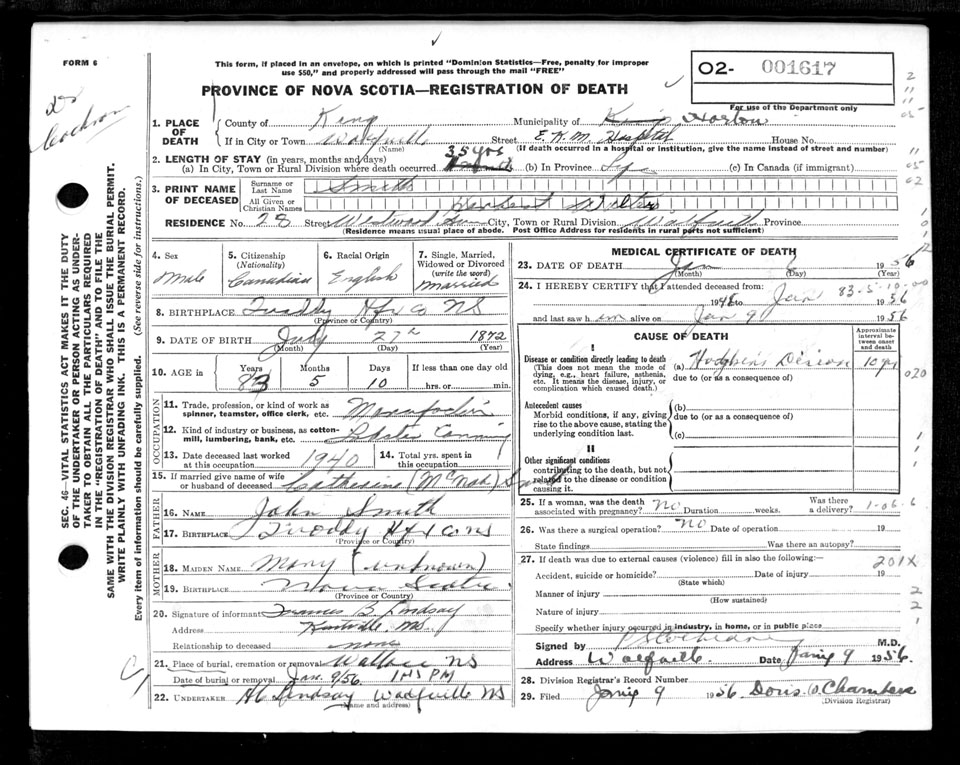 FORM 6
This form, if placed in an envelope, on which is printed "Dominion Statistics—Free, penalty for improper
use $50," and properly addressed will pass through the mail "FREE"
02- 001617
For use of the Department only
PROVINCE OF NOVA SCOTIA—REGISTRATION OF DEATH
SEC. 46—VITAL STATISTICS ACT MAKES IT THE DUTY
OF THE UNDERTAKER OR PERSON ACTING AS UNDER-
TAKER TO OBTAIN ALL THE PARTICULARS REQUIRED
IN THE "REGISTRATION OF DEATH" AND TO FILE THE
SAME WITH THE DIVISION REGISTRAR WHO SHALL ISSUE THE BURIAL PERMIT.
WRITE PLAINLY WITH UNFADING INK. THIS IS A PERMANENT RECORD.
Every item of information should be carefully supplied. (See reverse side for instructions.)
1. PLACE OF DEATH
County of Municipality of Horton
If in City or Town Street E.K.M. Hospital House No.
(Name) (If death occurred in a hospital or institution, give the name instead of street and number)
2. LENGTH OF STAY (in years, months and days) 35 yrs
(a) In City, Town or Rural Division where death occurred (b) In Province (c) In Canada (if immigrant)
3. PRINT NAME OF DECEASED
Surname or Last Name Smith
All Given or Christian Names Herbert Walter
RESIDENCE No. 28 Street Westwood Ave City, Town or Rural Division Wolfville Province
(Residence means usual place of abode. Post Office Address for residents in rural parts not sufficient)
4. Sex Male
5. Citizenship (Nationality) Canadian
6. Racial Origin English
7. Single, Married, Widowed or Divorced (write the word) Married
8. BIRTHPLACE Hfx Co NS
(Province or Country)
9. DATE OF BIRTH July 27th 1872
(Month) (Day) (Year)
10. AGE in Years 83 Months 5 Days 10 If less than one day old
hrs. or min.
OCCUPATION
11. Trade, profession, or kind of work as
spinner, teamster, office clerk, etc.
12. Kind of industry or business, as cotton-
mill, lumbering, bank, etc. Lobster Canning
13. Date deceased last worked
at this occupation 1940
14. Total yrs. spent in
this occupation
15. If married give name of wife
or husband of deceased Catherine (McNab) Smith
FATHER
16. NAME John Smith
17. BIRTHPLACE Hfx Co NS
(Province or Country)
MOTHER
18. MAIDEN NAME Mary (unknown)
19. BIRTHPLACE Nova Scotia
(Province or Country)
20. Signature of informant Frances B. Lindsay
Address Kentville, NS
Relationship to deceased none
21. Place of burial, cremation or removal Wallace NS
Date of burial or removal Jan. 9/56
22. UNDERTAKER HC Lindsay Wolfville NS
(Name and address)
MEDICAL CERTIFICATE OF DEATH
23. DATE OF DEATH Jan 1956
(Month) (Day) (Year)
24. I HEREBY CERTIFY that I attended deceased from:
83-5-10-00
1948 to Jan 1956
and last saw him alive on Jan 9 1956
CAUSE OF DEATH
Approximate interval between onset and death
I
Disease or condition directly leading to death
(This does not mean the mode of
dying, e.g., heart failure, asthenia,
etc. It means the disease, injury, or
complication which caused death.)
(a) Hodgkin's Disease
due to (or as a consequence of)
020
Antecedent causes
Morbid conditions, if any, giving
rise to the above cause, stating the
underlying condition last.
(b)
due to (or as a consequence of)
(c)
II
Other significant conditions
contributing to the death, but not
related to the disease or condition
causing it.
25. If a woman, was the death
associated with pregnancy? No Duration weeks. Was there
a delivery?
26. Was there a surgical operation? No Date of operation 19
State findings Was there an autopsy?
27. If death was due to external causes (violence) fill in also the following:—
201X
Accident, suicide or homicide? Date of injury 19
(State which)
Manner of injury
(How sustained)
Nature of injury
Specify whether injury occurred in industry, in home, or in public place
Signed by M.D.
Address Wolfville Date 9 1956.
28. Division Registrar's Record Number
29. Filed 9 1956 Doris O. Chambers
(Division Registrar)